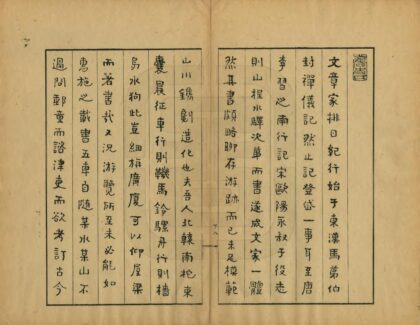 文章家排日紀行始于東漢馬第伯
封禪儀記然止記登岱一事耳至唐
李習之南行記宋歐陽永叔于役志
則山程水驛次第而書遂成文家一體
然其書頗略聊存游跡而已未足模範
山川鐫劖造化也夫吾人北轅南柁東
囊晨征車行則鞿馬鈴騾舟行則檣
烏水狗此豈細旃廣廈可以仰屋梁
而著書哉又況游覽所至未必能如
惠施之載書五車自隨某水某山不
過問郵童而諮津吏而欲考訂古今